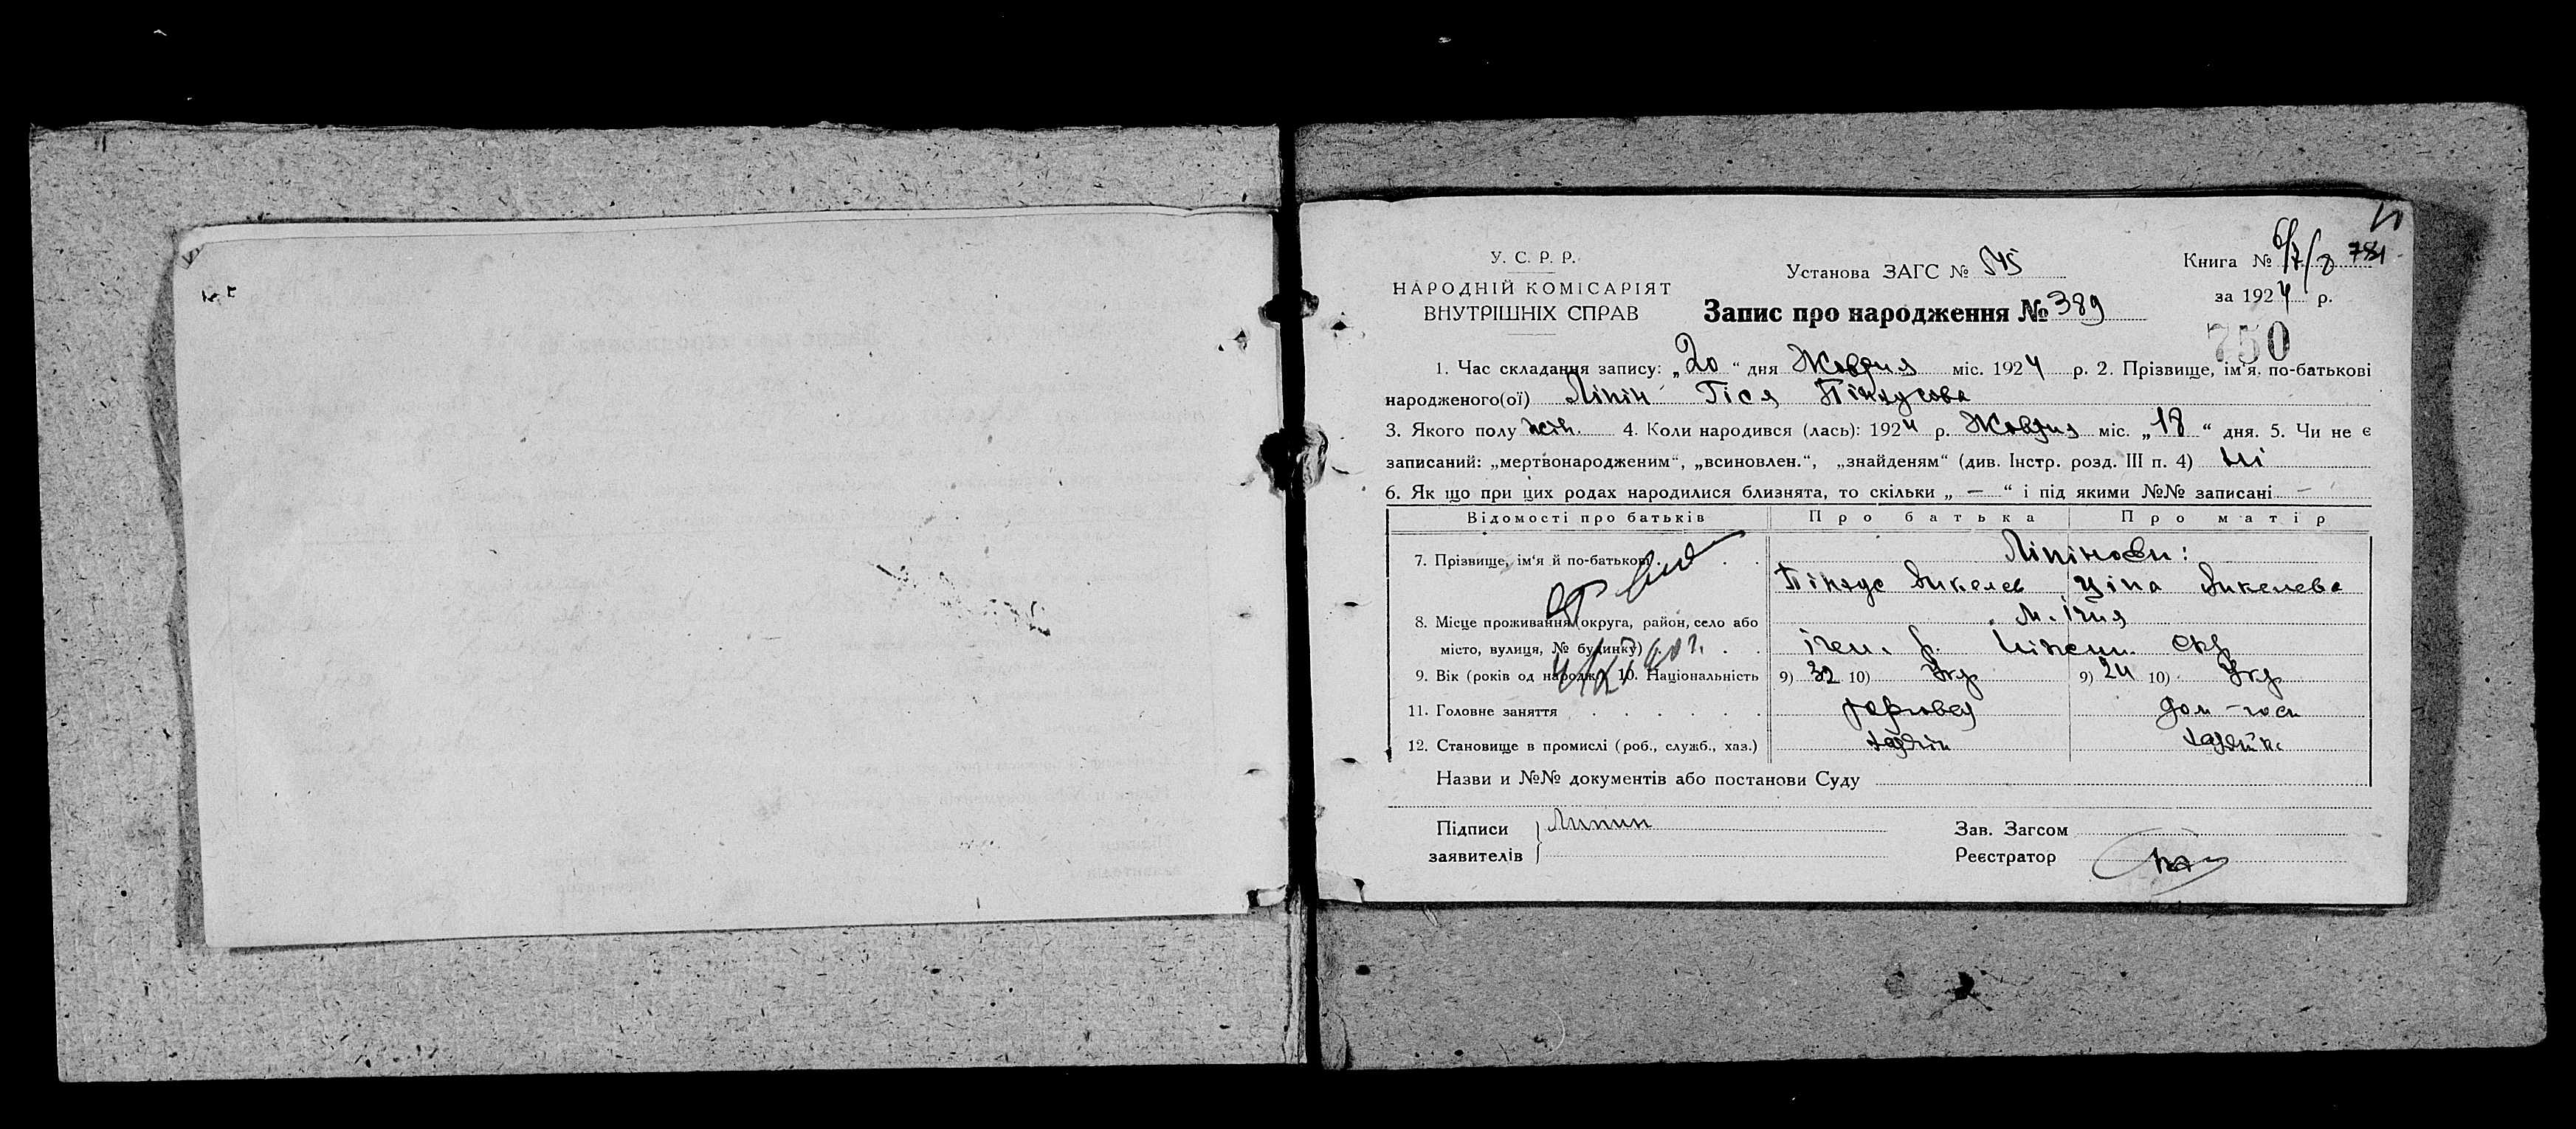 У. С. Р. Р.
НАРОДНІЙ КОМІСАРІЯТ
ВНУТРІШНІХ СПРАВ
Установа ЗАГС № 545
Запис про народження № 389
Книга № 6/7/8 781
за 1924 р.
750
1. Час складання запису: „20“ дня Жовтня міс. 1924 р. 2. Прізвище, ім'я, по-батькові
народженого(ої) Ліпін Гіся Пінхусова
3. Якого полу жін. 4. Коли народився (лась): 1924 р. Жовтня міс. „18“ дня. 5. Чи не є
записаний: „мертвонародженим“, „всиновлен.“, „знайденям“ (див. Інстр. розд. III п. 4) ні
6. Як що при цих родах народилися близнята, то скільки „ — “ і під якими №№ записані —
Відомості про батьків Про батька Про матір
7. Прізвище, ім'я й по-батькові Ліпінови:
Пінхус Янкелев Ціпа Янкелева
8. Місце проживання (округа, район, село або м. Ічня
місто, вулиця, № будинку) Ічен. р. Ніжен. окр
9. Вік (років од народж.) 10. Національність 9) 32 10) 9) 24 10)
11. Головне заняття дом-госп
12. Становище в промислі (роб., служб., хаз.) хазяїн хазяйка
Назви и №№ документів або постанови Суду
Підписи заявителів Липин
Зав. Загсом
Реєстратор